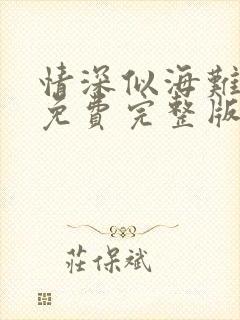 情深似海難
免費完整版
莊保斌